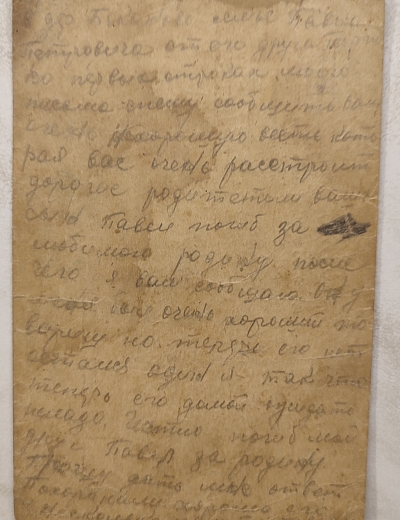 Петровича от его друга
Во первых строках моего
письма спешу сообщить вам
очень нехорошую весть кото
рая вас очень расстроит
дорогие родители ваш
сын Павел погиб за
любимою родину после
чего я вам сообщаю
был очень хороший то
варищ но теперь его нет
остался один я так что
теперь его домой ожидать
ненадо. погиб мой
друг Павел за родину
Прошу дать мне ответ
Похоронили хорошо его